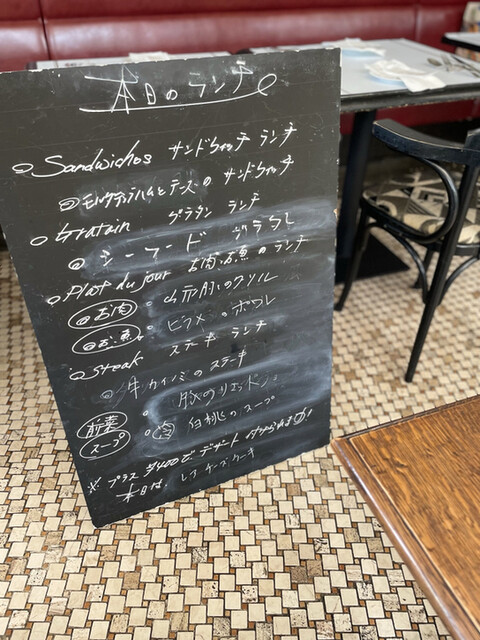 本日のランチ
Sandwiches サンドウィッチ ランチ
モルタデッラハムとチーズの サンドウィッチ
Gratain グラタン ランチ
シーフード グラタン
Plat du jour お肉、お魚 の ランチ
お肉 山形豚のグリル
お魚 ヒラメ の ポワレ
Steak ステーキ ランチ
牛カイノミ の ステーキ
前菜 豚のリエット
スープ 白桃の スープ
※ プラス ¥400で デザート 付けられます!
本日は、レアチーズケーキ